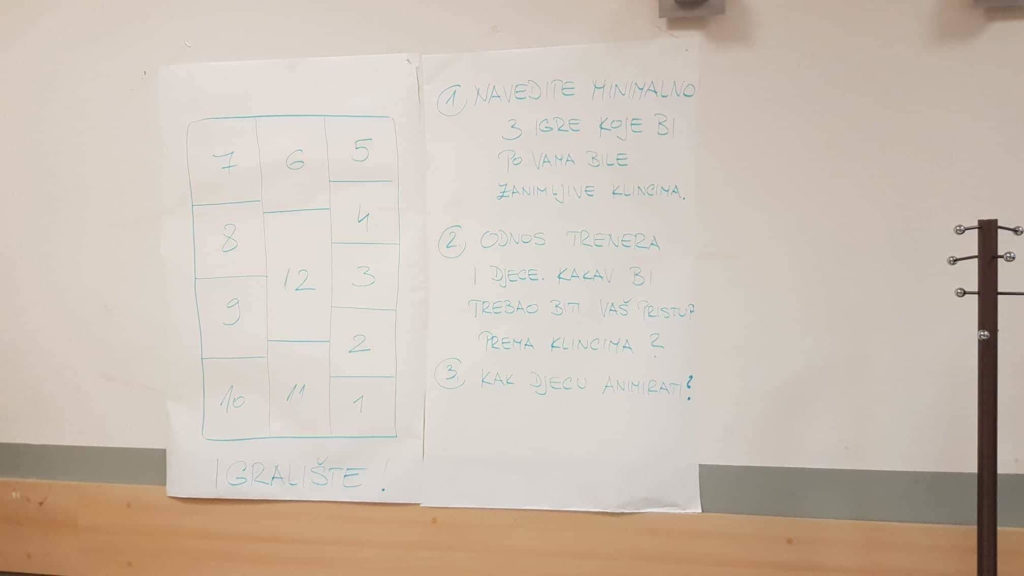 7 6 5
4
8
12 3
9
2
10 11 1
IGRALIŠTE!
① NAVEDITE MINIMALNO
3 IGRE KOJE BI
PO VAMA BILE
ZANIMLJIVE KLINCIMA.
② ODNOS TRENERA
I DJECE. KAKAV BI
TREBAO BITI VAŠ PRISTUP
PREMA KLINCIMA ?
③ KAK DJECU ANIMIRATI?